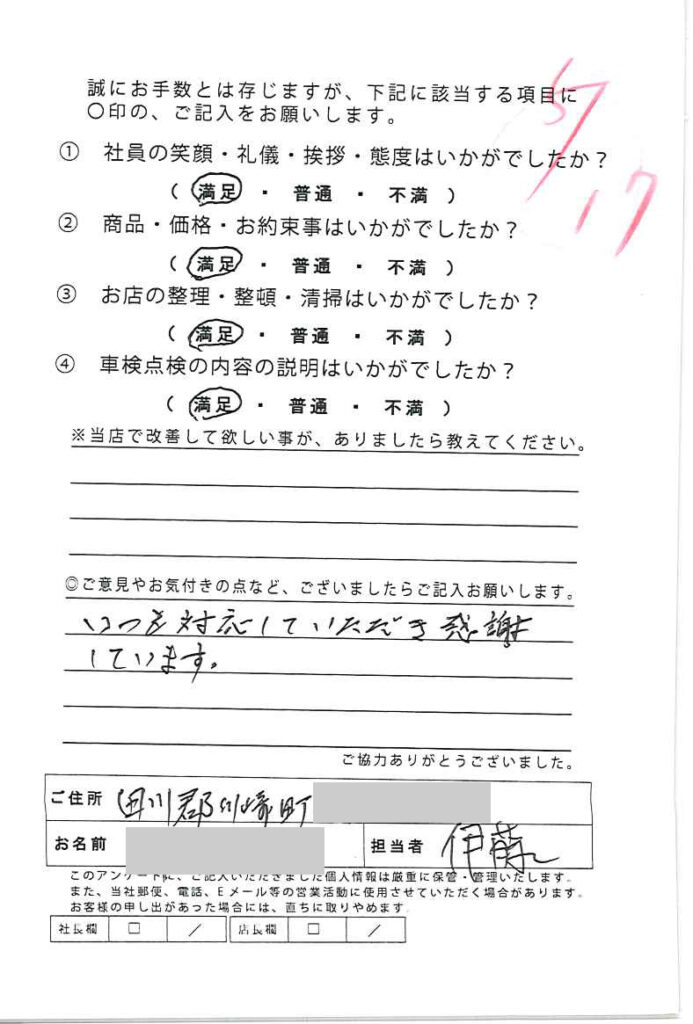 誠にお手数とは存じますが、下記に該当する項目に
〇印の、ご記入をお願いします。
5/17
① 社員の笑顔・礼儀・挨拶・態度はいかがでしたか？
( 満足 ・ 普通 ・ 不満 )
② 商品・価格・お約束事はいかがでしたか？
( 満足 ・ 普通 ・ 不満 )
③ お店の整理・整頓・清掃はいかがでしたか？
( 満足 ・ 普通 ・ 不満 )
④ 車検点検の内容の説明はいかがでしたか？
( 満足 ・ 普通 ・ 不満 )
※当店で改善して欲しい事が、ありましたら教えてください。
◎ご意見やお気付きの点など、ございましたらご記入お願いします。
いつも対応していただき感謝
しています。
ご協力ありがとうございました。
ご住所 田川郡川崎町
お名前 担当者 伊藤
このアンケートに、ご記入いただきました個人情報は厳重に保管・管理いたします。
また、当社郵便、電話、Eメール等の営業活動に使用させていただく場合があります。
お客様の申し出があった場合には、直ちに取りやめます。
社長欄 □ ／ 店長欄 □ ／